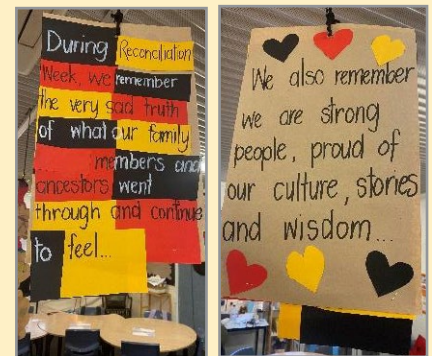 During Reconciliation
Week, we remember
the very sad truth
of what our family
members and
ancestors went
through and continue
to feel...
We also remember
we are strong
people, proud of
our culture, stories
and wisdom...